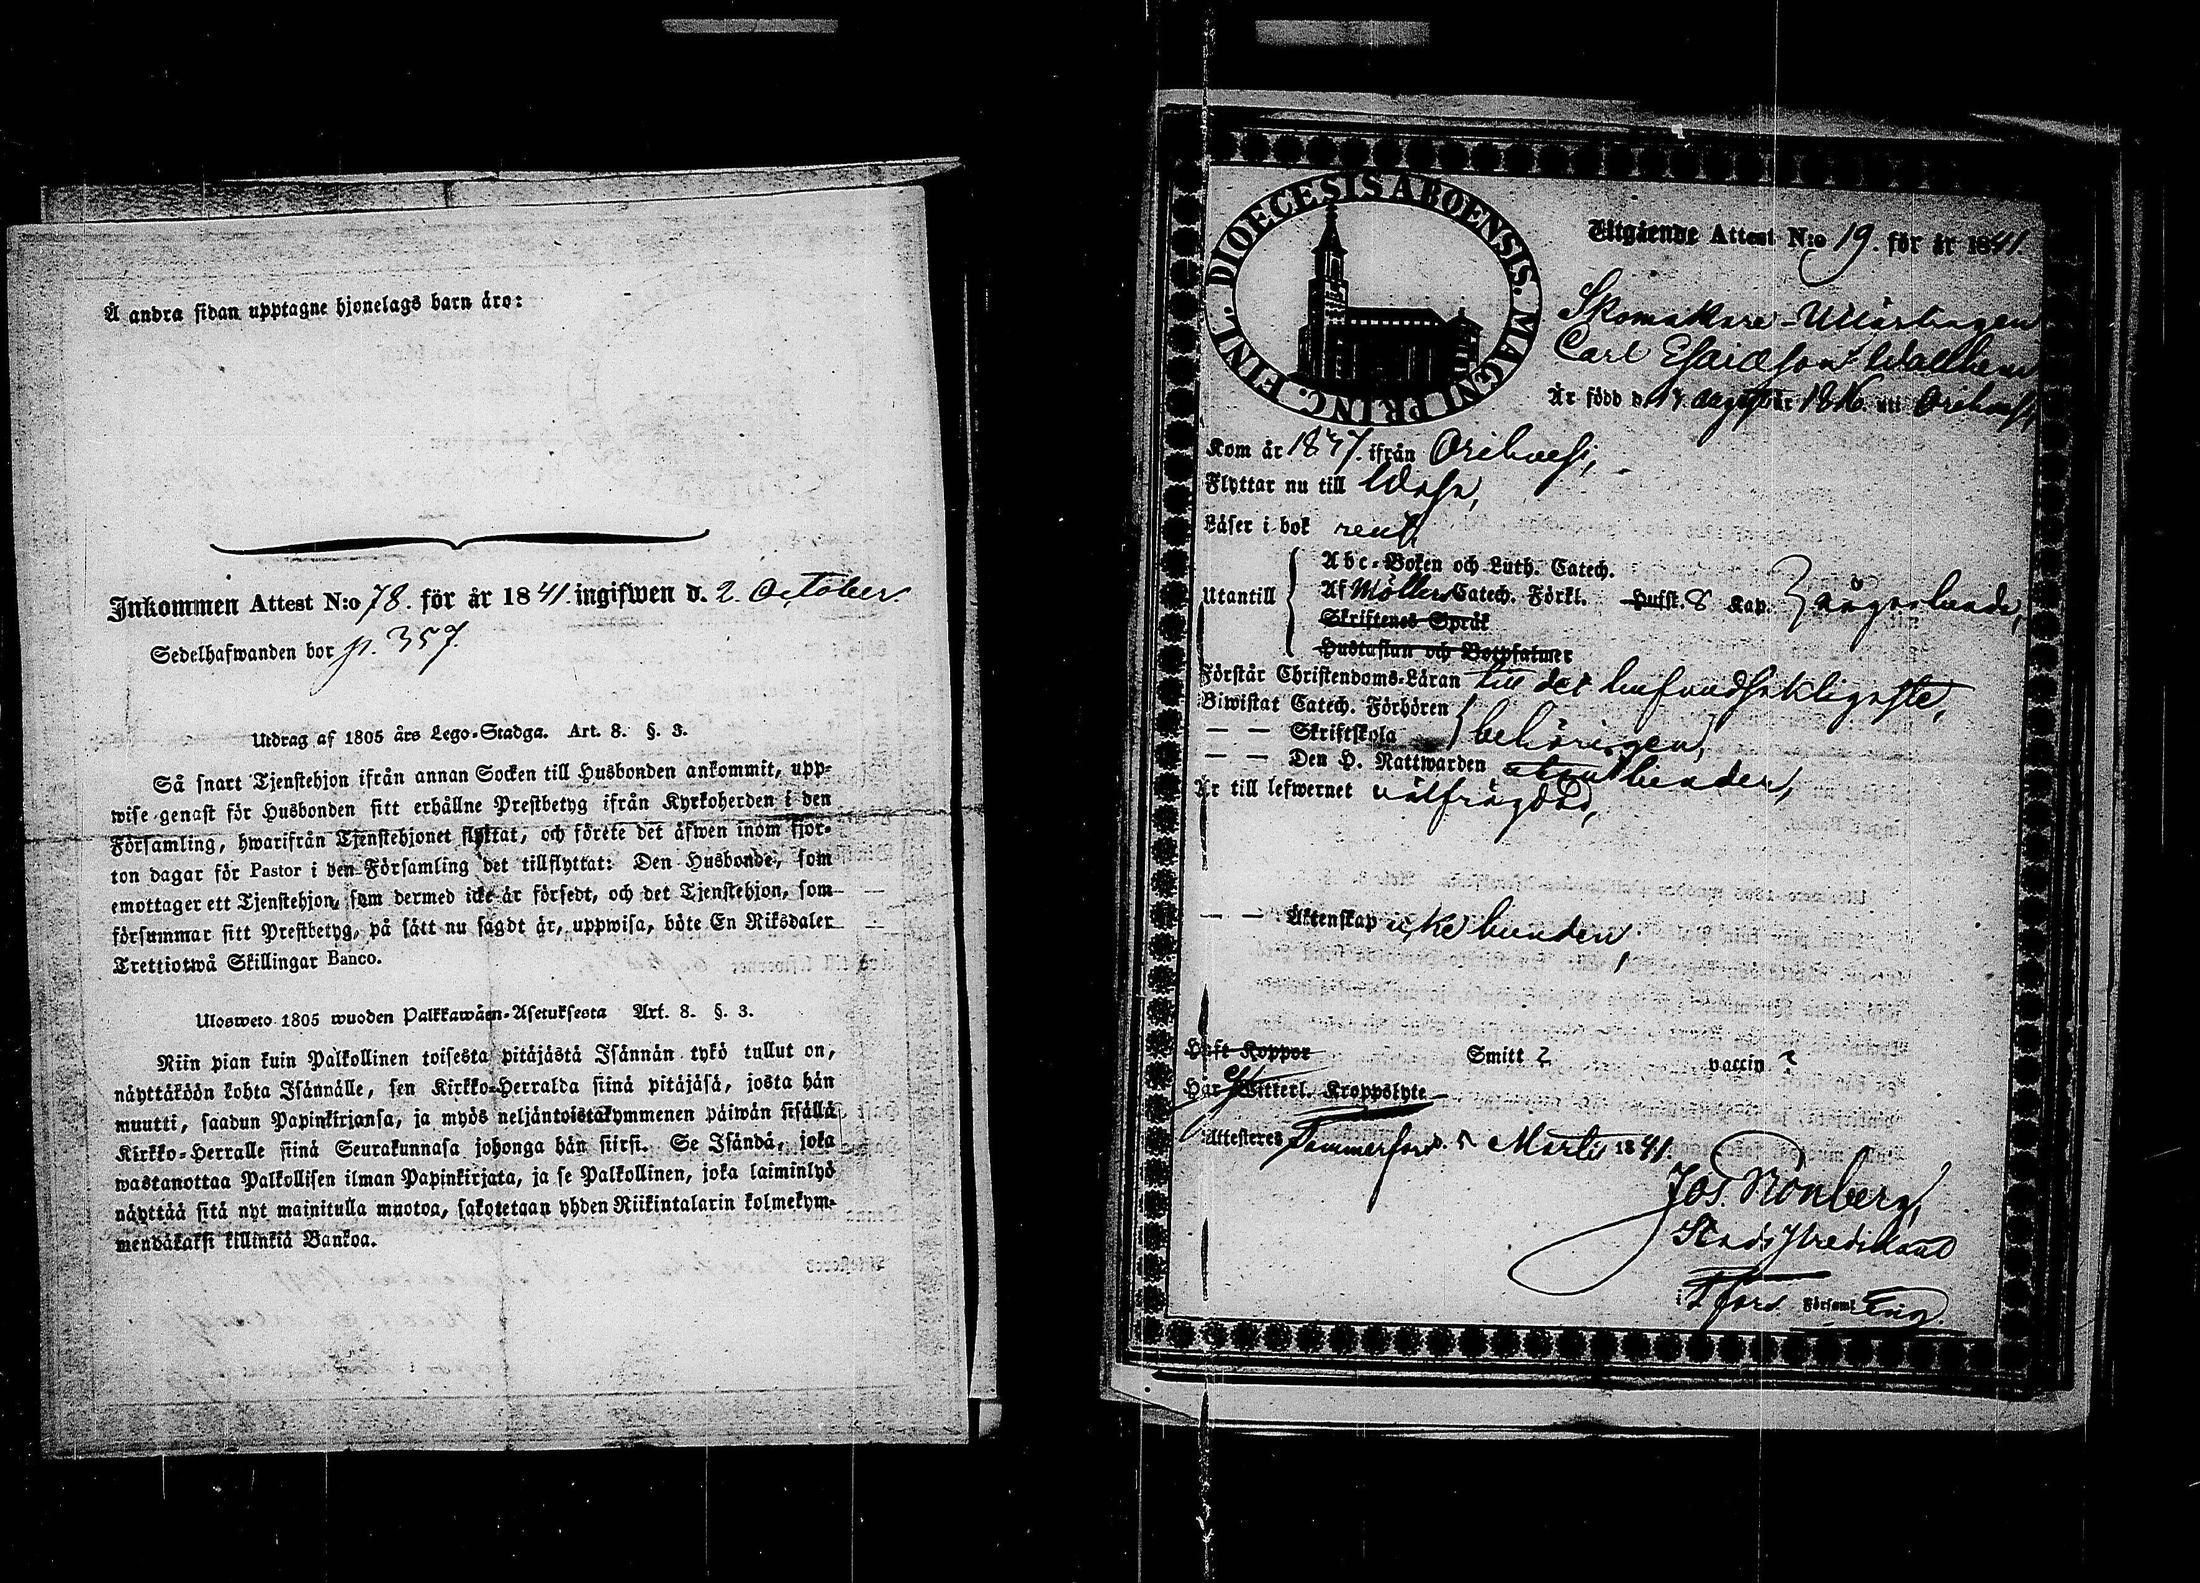 Å andra sidan upptagne hjonelags barn äro:
Inkommen Attest N:o 78. för år 1841. ingifwen d. 2. October.
Sedelhafwanden bor p. 357.
Utdrag af 1805 års Lego-Stadga. Art. 8. §. 3.
Så snart Tjenstehjon ifrån annan Socken till Husbonden ankommit, upp-
wise genast för Husbonden sitt erhållne Prestbetyg ifrån Kyrkoherden i den
Församling, hwarifrån Tjenstehjonet flyttat, och förete det äfwen inom fjor-
ton dagar för Pastor i den Församling det tillflyttat: Den Husbonde, som
emottager ett Tjenstehjon, som dermed icke är försedt, och det Tjenstehjon, som
försummar sitt Prestbetyg, på sätt nu sagdt är, uppwisa, böte En Riksdaler
Trettiotwå Skillingar Banco.
Ulosweto 1805 wuoden Palkkawäen-Asetuksesta Art. 8. §. 3.
Niin pian kuin Palkollinen toisesta pitäjästä Isännän tykö tullut on,
näyttäköön kohta Isännälle, sen Kirkko-Herralda siinä pitäjäsä, josta hän
muutti, saadun Papinkirjansa, ja myös neljäntoistakymmenen päiwän sisällä
Kirkko-Herralle siinä Seurakunnasa johonga hän siirsi. Se Isändä, joka
wastanottaa Palkollisen ilman Papinkirjata, ja se Palkollinen, joka laiminlyö
näyttää sitä nyt mainitulla muotoa, sakotetaan yhden Riikintalarin kolmekym-
mendäkaksi killinkiä Bankoa.
DIOECESIS ABOENSIS. MAGNI PRINC. FINL.
Utgående Attest N:o 19. för år 1841.
Skomakare-
Carl Esaiæson Wallhen
Är född d. 17 Augusti år 1816. uti Orihvesi,
Kom år 1837. ifrån Orihvesi,
Flyttar nu till Wasa,
Läser i bok rent,
Utantill
Abc-Boken och Luth. Catech.
Af Möllers Catech. Förkl. Hufst. 8 Kap.
Skriftenes Språk
Hustaflan och Botpsalmer
Förstår Christendoms-Läran till det
Biwistat Catech. Förhören
— — Skriftskola behörigen,
— — Den H. Nattwarden
Är till lefwernet välfrägdad,
— — Äktenskap icke bunden,
Haft Koppor Smitt ? vaccin ?
Har Ej Witterl. Kroppslyte
Attesteres Tammerfors d. 5 Martii 1841.
Jos. Rönberg,
Stads Predikant
i T:fors Församl.